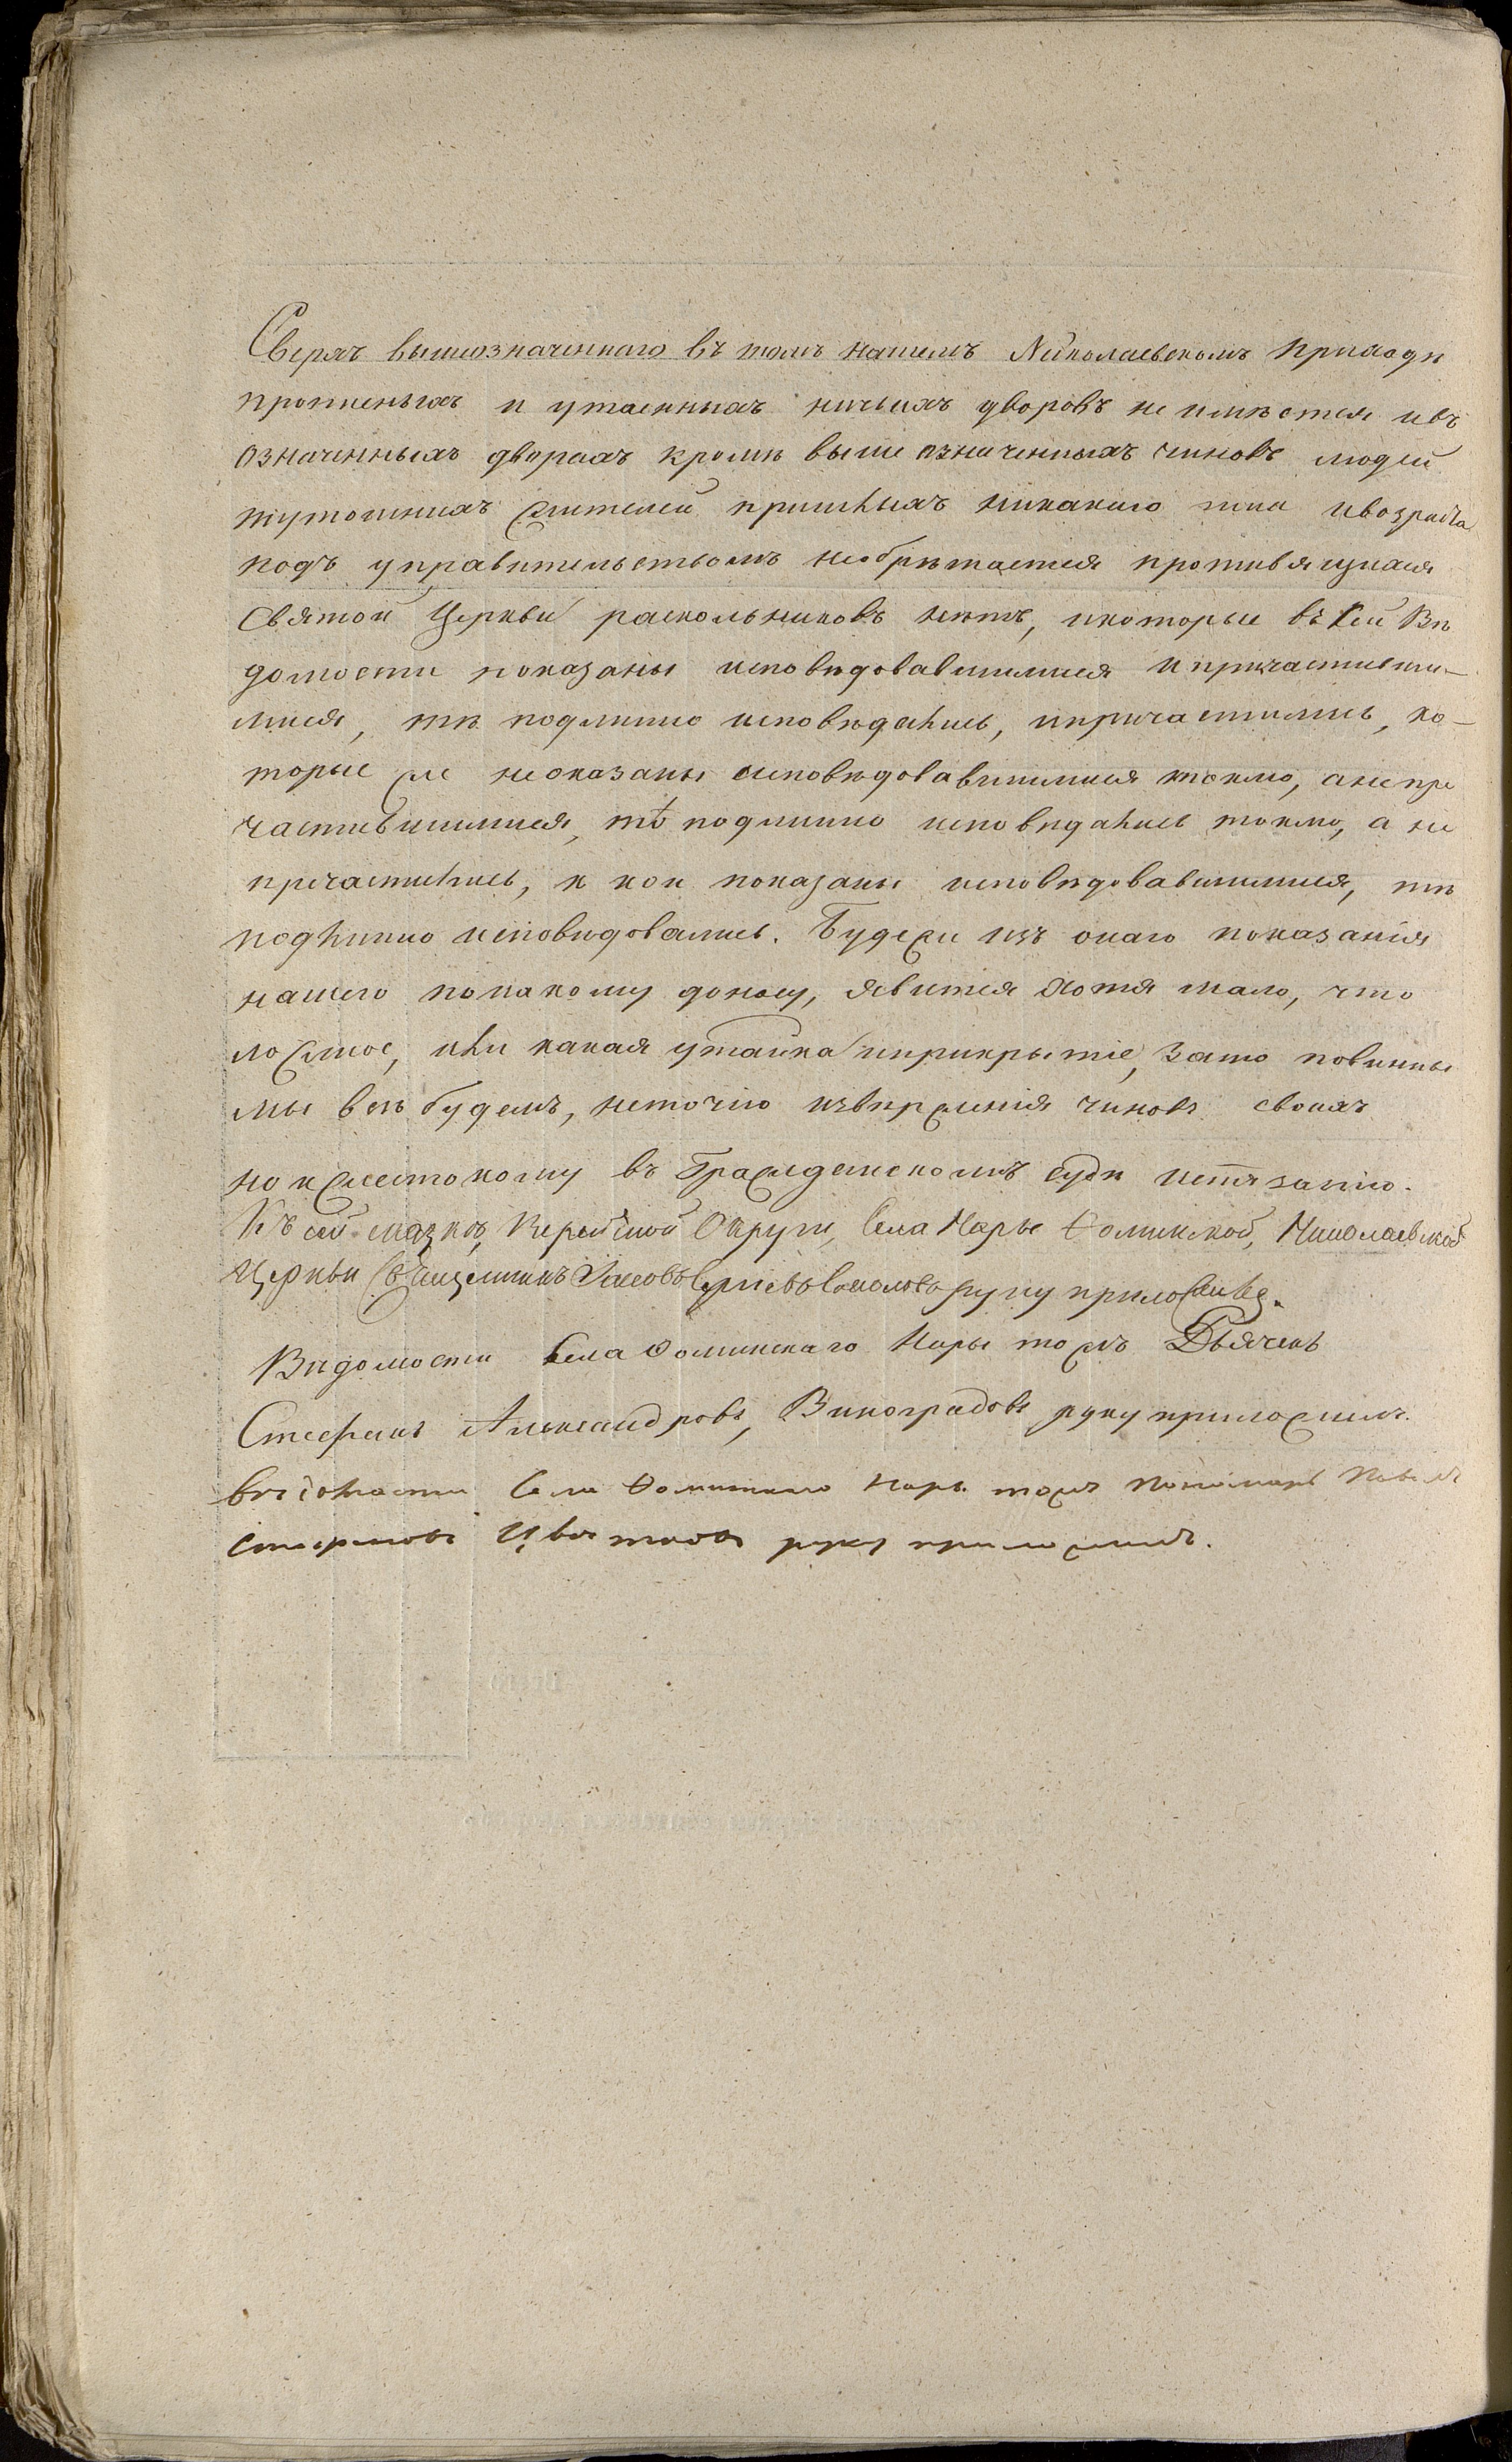 Сверхъ вышеозначеннаго въ томъ нашемъ Николаевскомъ приходѣ
пропиеныхъ и утаенныхъ ничьихъ дворовъ не имѣется ивъ
означенныхъ дворахъ кромѣ выше означенныхъ чиновъ людей
тутошнихъ жителей пришлыхъ никакаго пола ивозраста
подъ управительствомъ необрѣтается противящихся
Святой Церкви раскольниковъ нѣтъ, икоторые въ сей Вѣ
домости показаны исповѣдовавшимися ипричастивши–
мися, тѣ подлинно исповѣдались, ипричастились, ко–
торые же показаны исповѣдовавшимися токмо, а не при
частившимися, тѣ подлинно исповѣдались токмо, а не
причастились, и кои показаны исповѣдовавшимися, тѣ
подлинно исповѣдовались. Будежи изъ онаго показанія
нашего покакому доносу, явится хотя мало, что
ложное, или какая утайка иприкрытіе, зато повинны
мы всѣ будемъ, неточію изверженія чиновъ своихъ
но кжестокому въ Гражданскомъ судѣ истязанію.
Къ сей сказкѣ, Верейской Округи, Села Нары Фоминской, Николаевской
Церкви Священникъ Іаковъ Сергіевъ Соколовъ руку приложилъ.
Вѣдомости Села Фоминскаго Нары тожъ Дьячекъ
Стефанъ Александровъ, Виноградовъ руку приложилъ.
вѣдомости Села Фоминскаго Нары тожъ Пономарь Павелъ
Стефановъ Цвѣтковъ руку приложилъ.